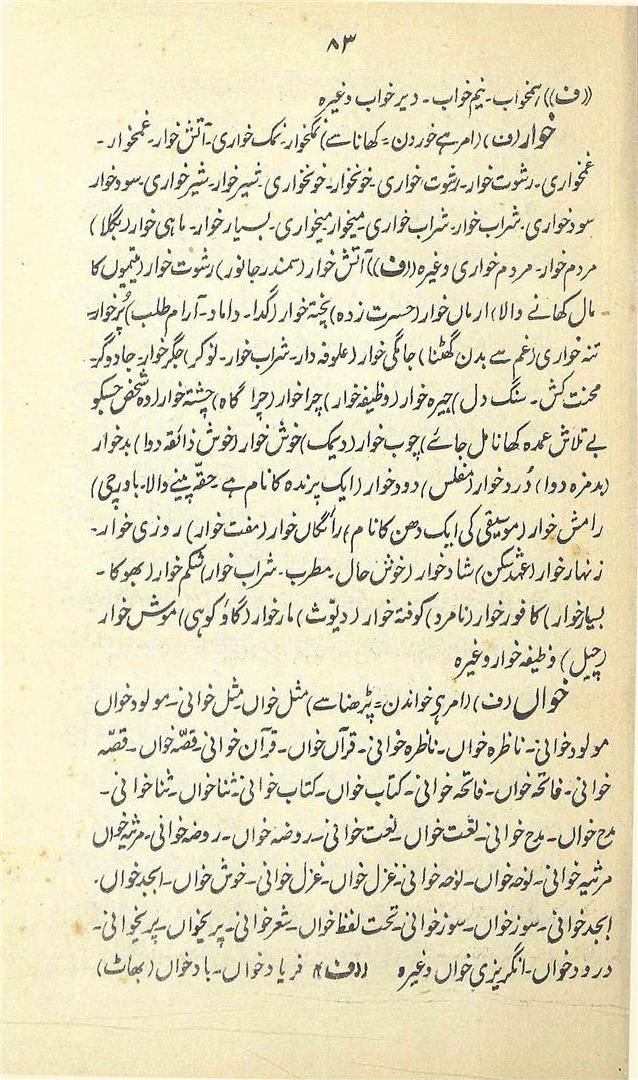 ۸۳
((ف)) ہمخواب۔ نیم خواب۔ دیر خواب وغیرہ
خوار (ف) (امر ہے خوردن = کھانا سے) نمکخوار۔ نمک خواری۔ آتش خوار۔ غمخوار۔
غمخواری۔ رشوت خوار۔ رشوت خواری۔ خونخوار۔ خونخواری۔ شیر خوار۔ شیر خواری۔ سود خوار
سود خواری۔ شراب خوار۔ شراب خواری۔ میخوار میخواری۔ بسیار خوار۔ ماہی خوار (بگلا)
مردم خوار۔ مردم خواری وغیرہ ((ف)) آتش خوار (سمندر جانور) رشوت خوار (یتیموں کا
مال کھانے والا) ارماں خوار (حسرت زدہ) پختہ خوار (گدا۔ داماد۔ آرام طلب) پُر خوار۔
تنہ خواری (غم سے بدن گھٹنا) جامگی خوار (علوفہ دار۔ شراب خوار۔ نوکر) جگر خوار۔ جادوگر۔
محنت کش۔ سنگ دل) جیرہ خوار (وظیفہ خوار) چرا خوار (چرا گاہ) چشتہ خوار (وہ شخص جسکو
بے تلاش عمدہ کھانا مل جائے) چوب خوار (دیمک) خوش خوار (خوش ذائقہ دوا) بد خوار
(بدمزہ دوا) دُرد خوار (مفلس) دود خوار (ایک پرندہ کا نام ہے۔ حقّہ پینے والا۔ باورچی)
رامش خوار (موسیقی کی ایک دھن کا نام) رائگاں خوار (مفت خوار) روزی خوار۔
زنہار خوار (عہد شکن) شاد خوار (خوش حال۔ مطرب۔ شراب خوار) شکم خوار (بھوکا۔
بسیار خوار) کافور خوار (نامرد) کوفتہ خوار (دیّوث) مار خوار (گاؤ کوہی) موش خوار
(چیل) وظیفہ خوار وغیرہ
خواں (ف) (امر ہی خواندن = پڑھنا سے) مثل خواں۔ مثل خوانی۔ مولود خواں
مولود خوانی۔ ناظرہ خواں۔ ناظرہ خوانی۔ قرآں خواں۔ قرآن خوانی۔ قصّہ خواں۔ قصّہ
خوانی۔ فاتحہ خواں۔ فاتحہ خوانی۔ کتاب خواں۔ کتاب خوانی۔ ثنا خواں۔ ثنا خوانی۔
مدح خواں۔ مدح خوانی۔ نعت خواں۔ نعت خوانی۔ روضہ خواں۔ روضہ خوانی۔ مرثیہ خواں
مرثیہ خوانی۔ نوحہ خواں۔ نوحہ خوانی۔ غزل خواں۔ غزل خوانی۔ خوش خواں۔ ابجد خواں۔
ابجد خوانی۔ سوز خواں۔ سوز خوانی۔ تحت لفظ خواں۔ شعر خوانی۔ پریخواں۔ پریخوانی۔
درود خواں۔ انگریزی خواں وغیرہ ((ف)) فریاد خواں۔ باد خواں (بھاٹ)